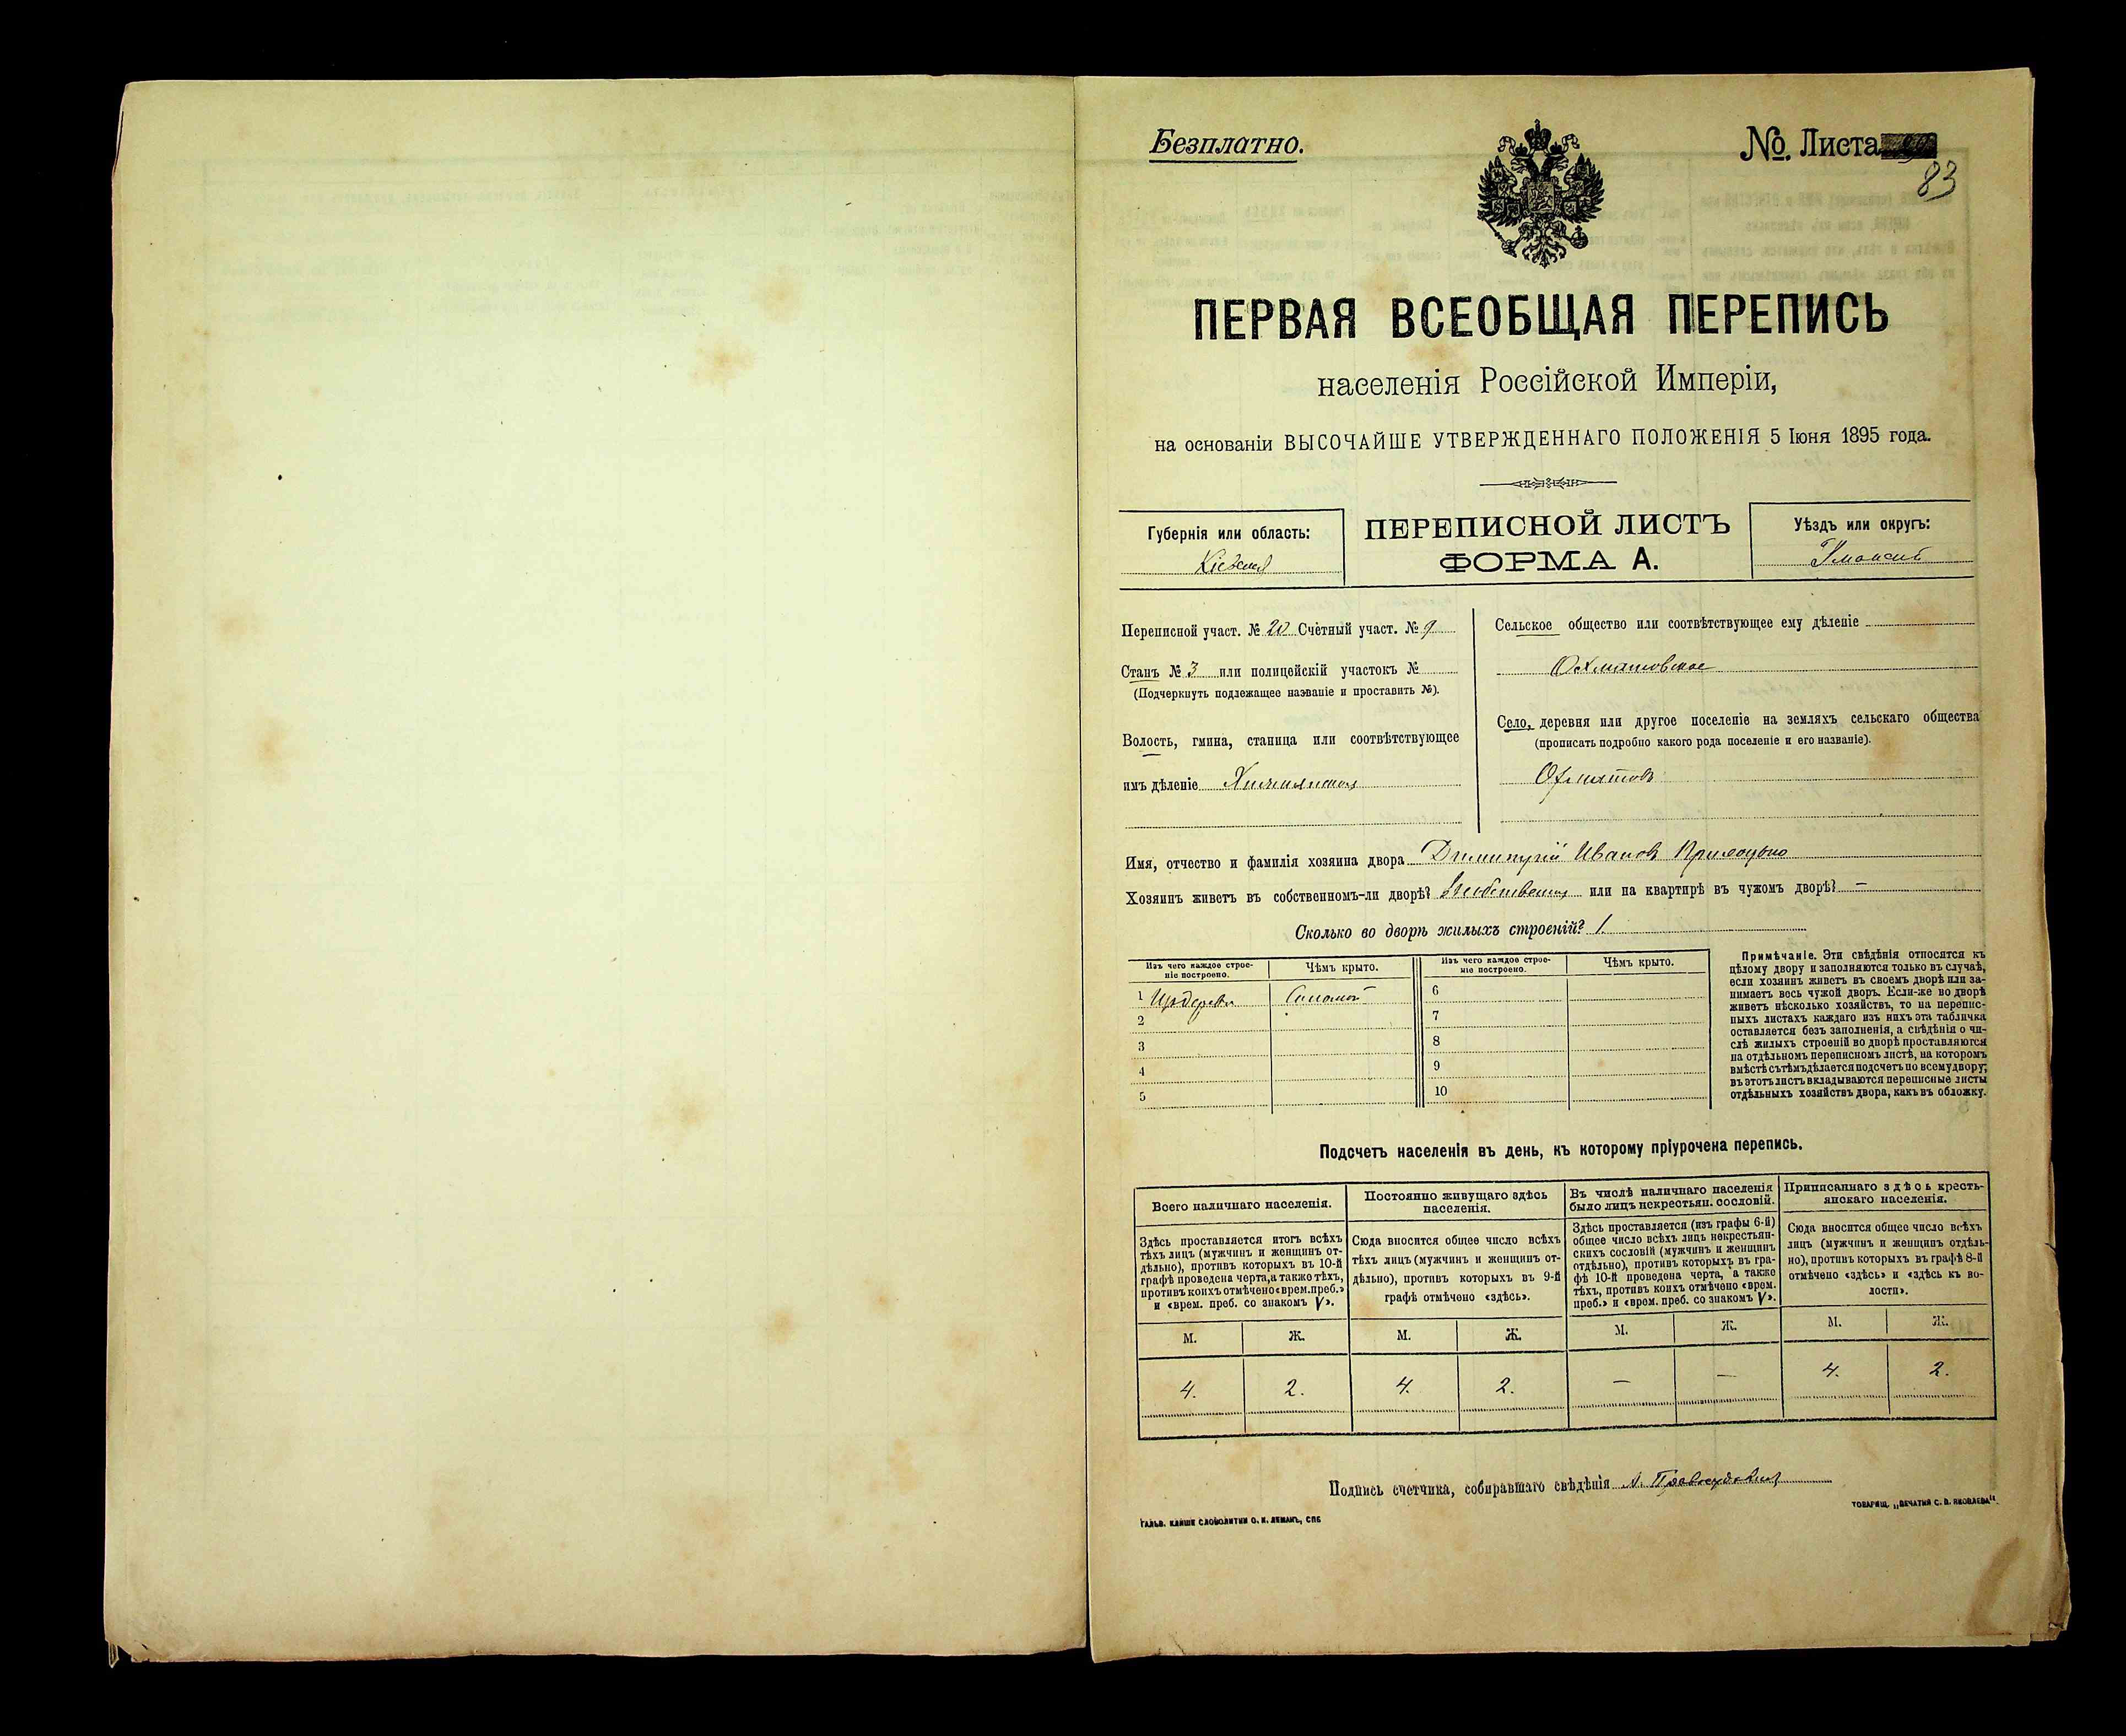 Безплатно.
№. Листа
83
ПЕРВАЯ ВСЕОБЩАЯ ПЕРЕПИСЬ
населенія Россійской Имперіи,
на основаніи ВЫСОЧАЙШЕ УТВЕРЖДЕННАГО ПОЛОЖЕНІЯ 5 Іюня 1895 года.
Губернія или область:
Кіевская
ПЕРЕПИСНОЙ ЛИСТЪ
ФОРМА А.
Уѣздъ или округъ:
Уманскій
Переписной участ. № 20 Счетный участ. № 9
Станъ № 3 или полицейскій участокъ №
(Подчеркнуть подлежащее названіе и проставить №).
Волость, гмина, станица или соотвѣтствующее
имъ дѣленіе
Сельское общество или соотвѣтствующее ему дѣленіе
Охматовское
Село, деревня или другое поселеніе на земляхъ сельскаго общества
(прописать подробно какого рода поселеніе и его названіе).
Охматовъ
Имя, отчество и фамилія хозяина двора Дмитрій Ивановъ
Хозяинъ живетъ въ собственномъ-ли дворѣ? или на квартирѣ въ чужомъ дворѣ? —
Сколько во дворѣ жилыхъ строеній? 1.
Изъ чего каждое строе-
ніе построено.
Чѣмъ крыто.
Изъ чего каждое строе-
ніе построено.
Чѣмъ крыто.
1 Изъ дерева Соломой
2
3
4
5
6
7
8
9
10
Примѣчаніе. Эти свѣдѣнія относятся къ
цѣлому двору и заполняются только въ случаѣ,
если хозяинъ живетъ въ своемъ дворѣ или за-
нимаетъ весь чужой дворъ. Если-же во дворѣ
живетъ нѣсколько хозяйствъ, то на перепис-
ныхъ листахъ каждаго изъ нихъ эта табличка
оставляется безъ заполненія, а свѣдѣнія о чи-
слѣ жилыхъ строеній во дворѣ проставляются
на отдѣльномъ переписномъ листѣ, на которомъ
вмѣстѣ съ тѣмъ дѣлается подсчетъ по всему двору;
въ этотъ листъ вкладываются переписные листы
отдѣльныхъ хозяйствъ двора, какъ въ обложку.
Подсчетъ населенія въ день, къ которому пріурочена перепись.
Всего наличнаго населенія.
Здѣсь проставляется итогъ всѣхъ
тѣхъ лицъ (мужчинъ и женщинъ от-
дѣльно), противъ которыхъ въ 10-й
графѣ проведена черта, а также тѣхъ,
противъ коихъ отмѣчено «врем. преб.»
и «врем. преб. со знакомъ V».
Постоянно живущаго здѣсь
населенія.
Сюда вносится общее число всѣхъ
тѣхъ лицъ (мужчинъ и женщинъ от-
дѣльно), противъ которыхъ въ 9-й
графѣ отмѣчено «здѣсь».
Въ числѣ наличнаго населенія
было лицъ некрестьян. сословій.
Здѣсь проставляется (изъ графы 6-й)
общее число всѣхъ лицъ некрестьян-
скихъ сословій (мужчинъ и женщинъ
отдѣльно), противъ которыхъ въ гра-
фѣ 10-й проведена черта, а также
тѣхъ, противъ коихъ отмѣчено «врем.
преб.» и «врем. преб. со знакомъ V».
Приписаннаго здѣсь кресть-
янскаго населенія.
Сюда вносится общее число всѣхъ
лицъ (мужчинъ и женщинъ отдѣль-
но), противъ которыхъ въ графѣ 8-й
отмѣчено «здѣсь» и «здѣсь къ во-
лости».
М. Ж. М. Ж. М. Ж. М. Ж.
4. 2. 4. 2. — — 4. 2.
Подпись счетчика, собиравшаго свѣдѣнія
ГАЛЬВ. КЛИШЕ СЛОВОЛИТНИ О. И. ЛЕМАНЪ, СПБ
ТОВАРИЩ. „ПЕЧАТНЯ С. П. ЯКОВЛЕВА".